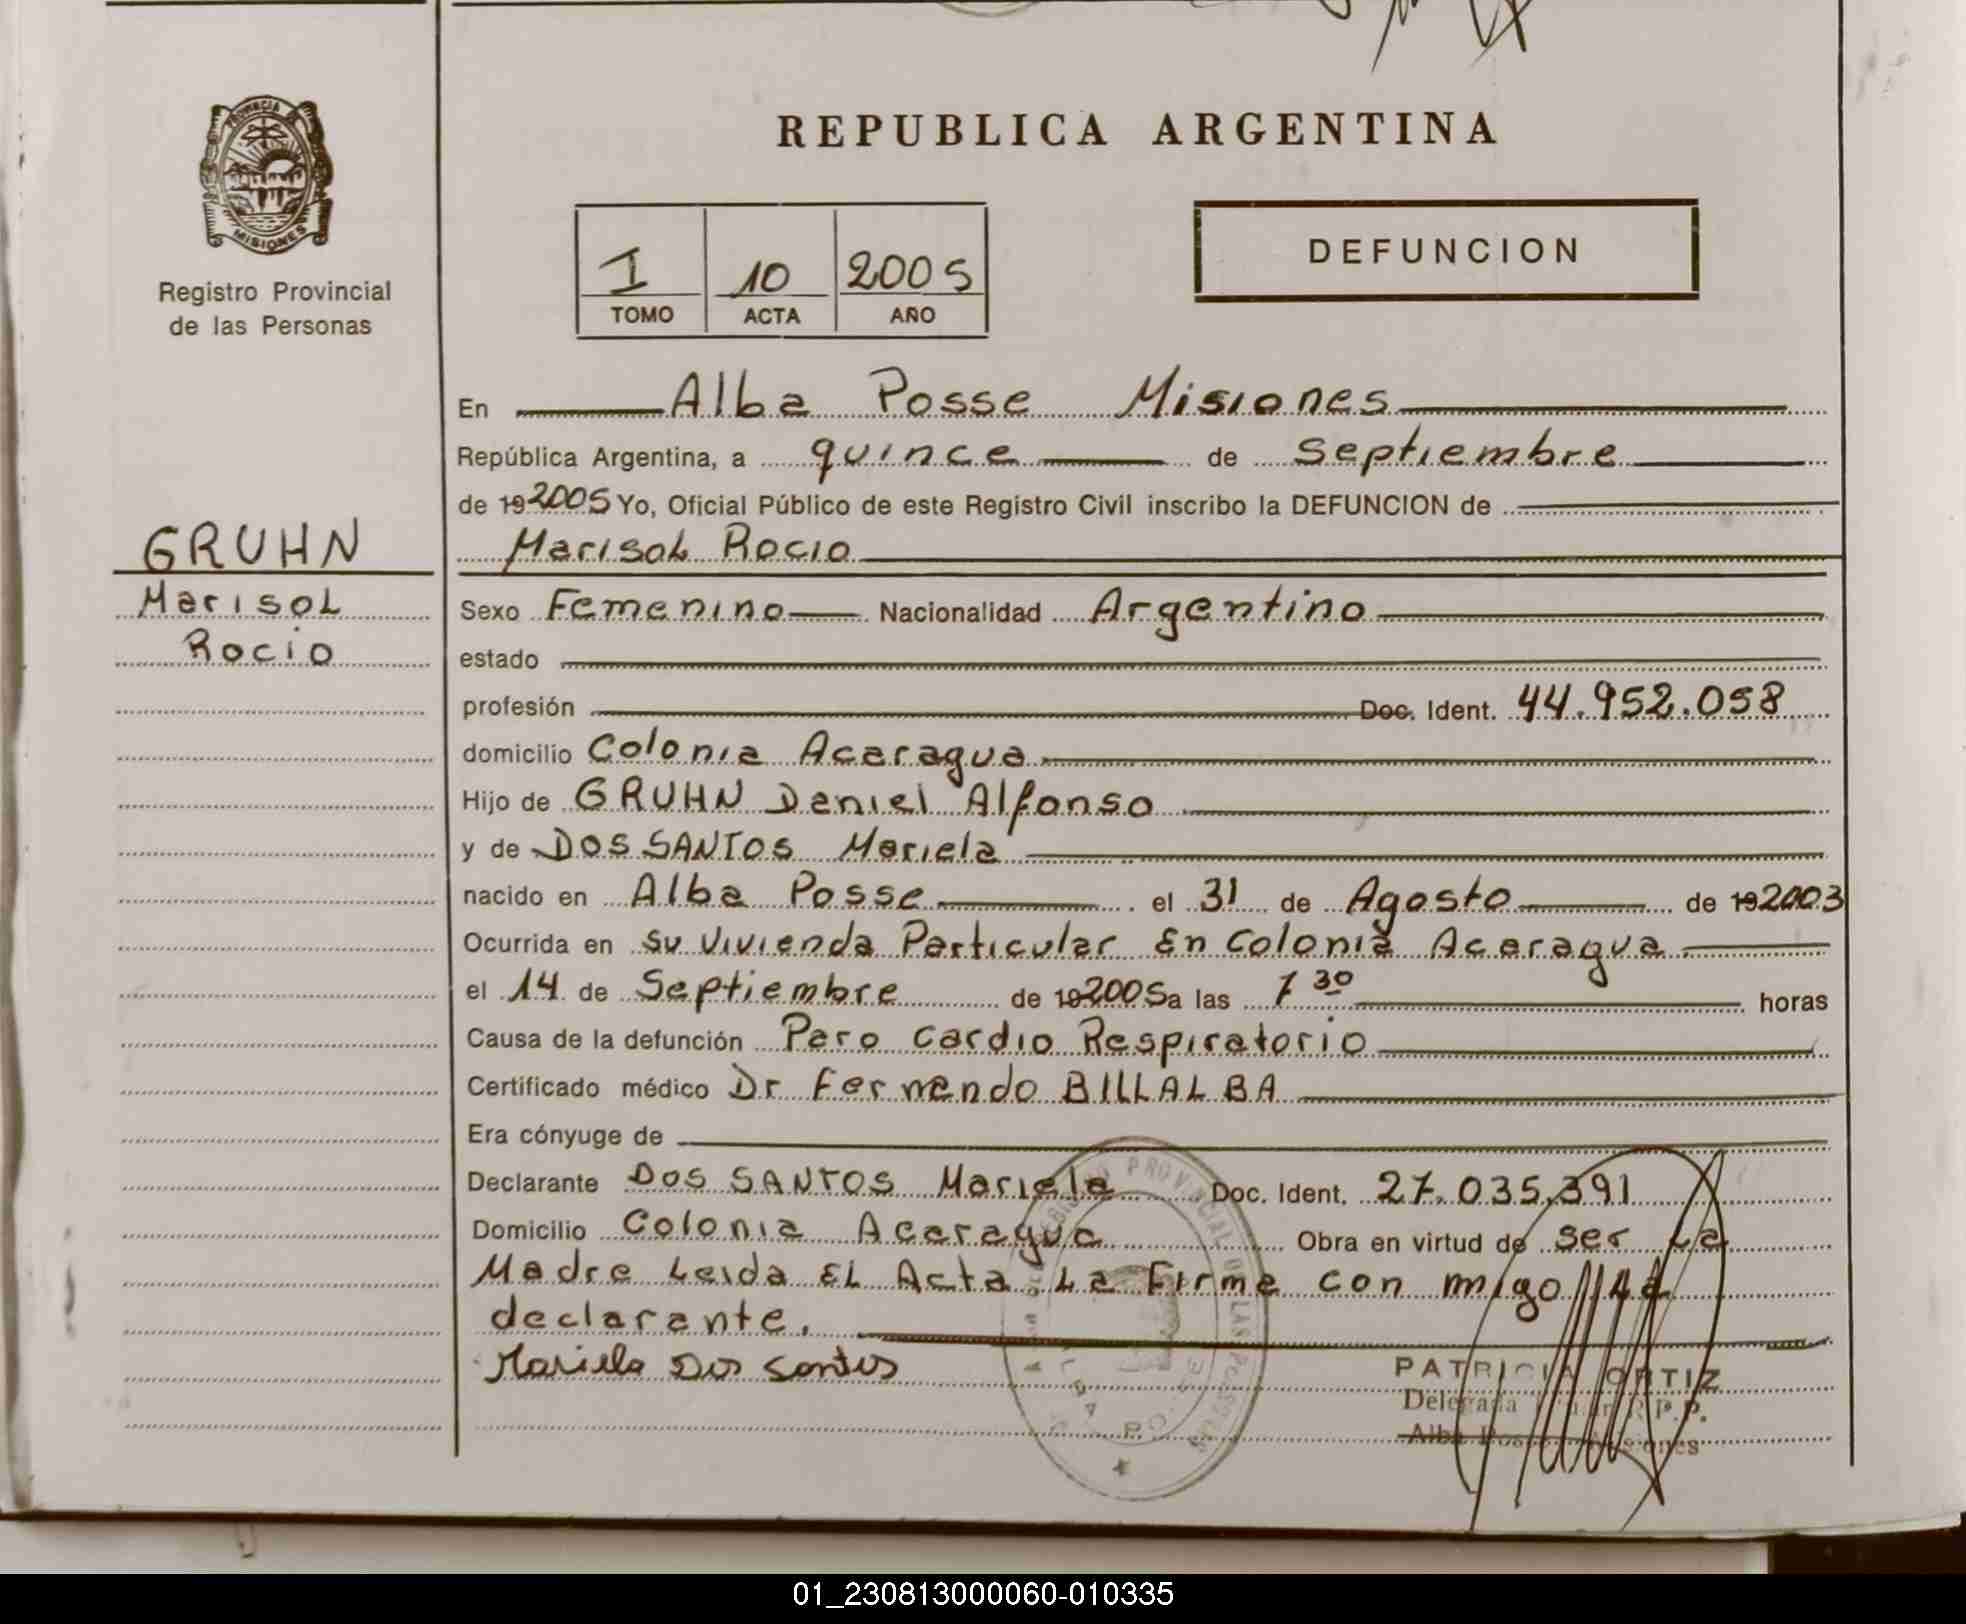 REPUBLICA ARGENTINA
PROVINCIA
MISIONES
Registro Provincial
de las Personas
I 10 2005
TOMO ACTA AÑO
DEFUNCION
GRUHN
Marisol
Rocio
En Alba Posse Misiones
República Argentina, a quince de Septiembre
de 19 2005 Yo, Oficial Público de este Registro Civil inscribo la DEFUNCION de
Marisol Rocio
Sexo Femenino Nacionalidad Argentino
estado
profesión Doc. Ident. 44.952.058
domicilio Colonia Acaragua
Hijo de GRUHN Daniel Alfonso
y de DOS SANTOS Mariela
nacido en Alba Posse el 31 de Agosto de 19 2003
Ocurrida en su vivienda Particular En Colonia Acaragua
el 14 de Septiembre de 19 2005 a las 7 30 horas
Causa de la defunción Paro cardio Respiratorio
Certificado médico Dr Fernando BILLALBA
Era cónyuge de
Declarante DOS SANTOS Mariela Doc. Ident. 27.035.391
Domicilio Colonia Acaragua Obra en virtud de ser La
Madre Leida EL Acta La Firma con migo La
declarante.
Mariela Dos Santos
PATRICIA ORTIZ
Delegada R.P.P.
Alba Posse Misiones
PROVINCIAL DE LAS PERSONAS
01_230813000060-010335